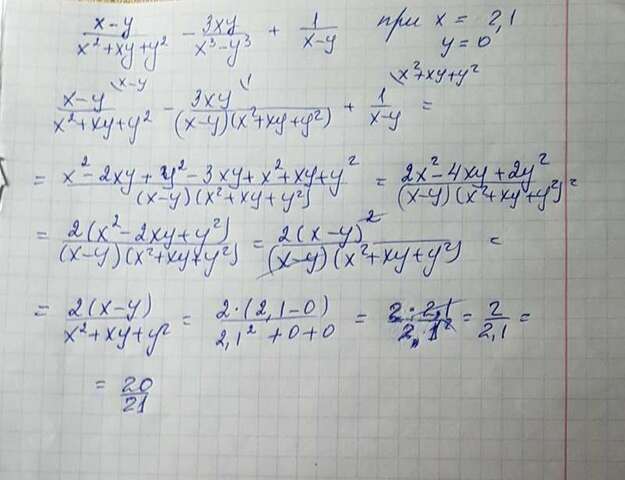 (x-y)/(x²+xy+y²) - 3xy/(x³-y³) + 1/(x-y) при x = 2,1
y = 0
(x-y)/(x²+xy+y²) \x-y - 3xy/((x-y)(x²+xy+y²)) \1 + 1/(x-y) \x²+xy+y² =
= (x²-2xy+y²-3xy+x²+xy+y²)/((x-y)(x²+xy+y²)) = (2x²-4xy+2y²)/((x-y)(x²+xy+y²)) =
= 2(x²-2xy+y²)/((x-y)(x²+xy+y²)) = 2(x-y)²/((x-y)(x²+xy+y²)) =
= 2(x-y)/(x²+xy+y²) = 2·(2,1-0)/(2,1²+0+0) = 2·2,1/2,1² = 2/2,1 =
= 20/21